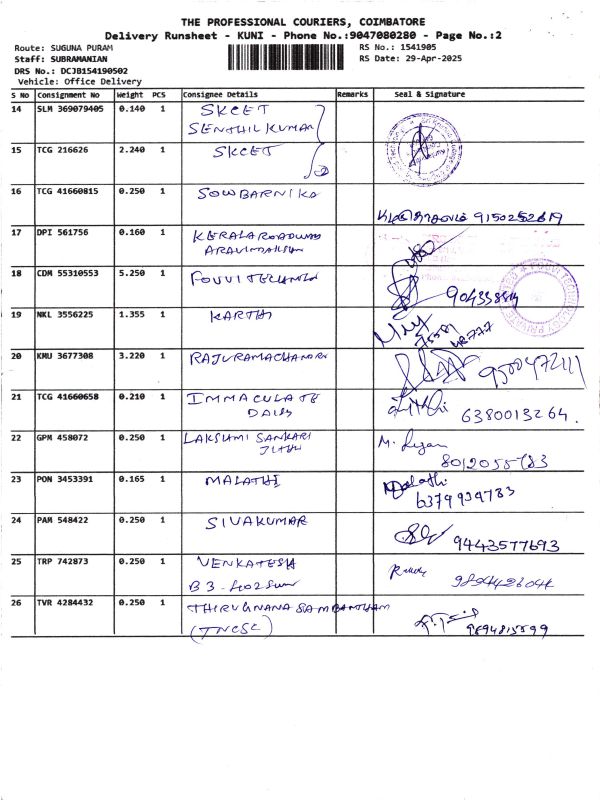 THE PROFESSIONAL COURIERS, COIMBATORE
Delivery Runsheet - KUNI - Phone No.:9047080280 - Page No.:2
Route: SUGUNA PURAM
RS No.: 1541905
Staff: SUBRAMANIAN
RS Date: 29-Apr-2025
DRS No.: DCJB154190502
Vehicle: Office Delivery
S No Consignment No Weight PCS Consignee Details Remarks Seal & Signature
14 SLM 369079405 0.140 1 SKCET
SENTHIL KUMAR
15 TCG 216626 2.240 1 SKCET
16 TCG 41660815 0.250 1 SOWBARNIKA
9150252619
17 DPI 561756 0.160 1 KERALA ROADWAYS
18 CDM 55310553 5.250 1
19 NKL 3556225 1.355 1 KARTHI
20 KMU 3677308 3.220 1 RAJURAMACHANDRA
21 TCG 41660658 0.210 1 IMMACULATE
6380013264.
22 GPM 458072 0.250 1 LAKSHMI SANKARI
23 PON 3453391 0.165 1 MALATHI Malathi
24 PAM 548422 0.250 1 SIVAKUMAR
9443577693
25 TRP 742873 0.250 1 VENKATESH
26 TVR 4284432 0.250 1 THIRUGNANA SAMBANTHAM
(TNCSC)
9894815599